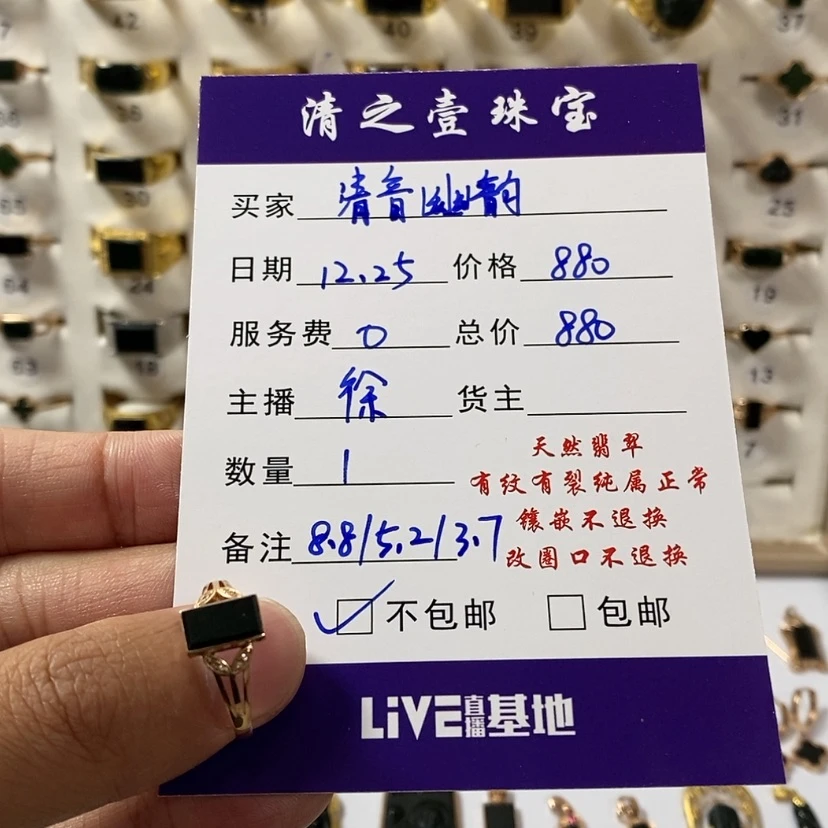 清之壹珠宝
买家 清音幽韵
日期 12.25 价格 880
服务费 0 总价 880
主播 徐 货主
数量 1
天然翡翠
有纹有裂纯属正常
镶嵌不退换
改圈口不退换
备注 8.8/5.2/3.7
不包邮 包邮
LiVE直播基地
42
41
40
39
37
36
31
30
25
24
19
18
13
7